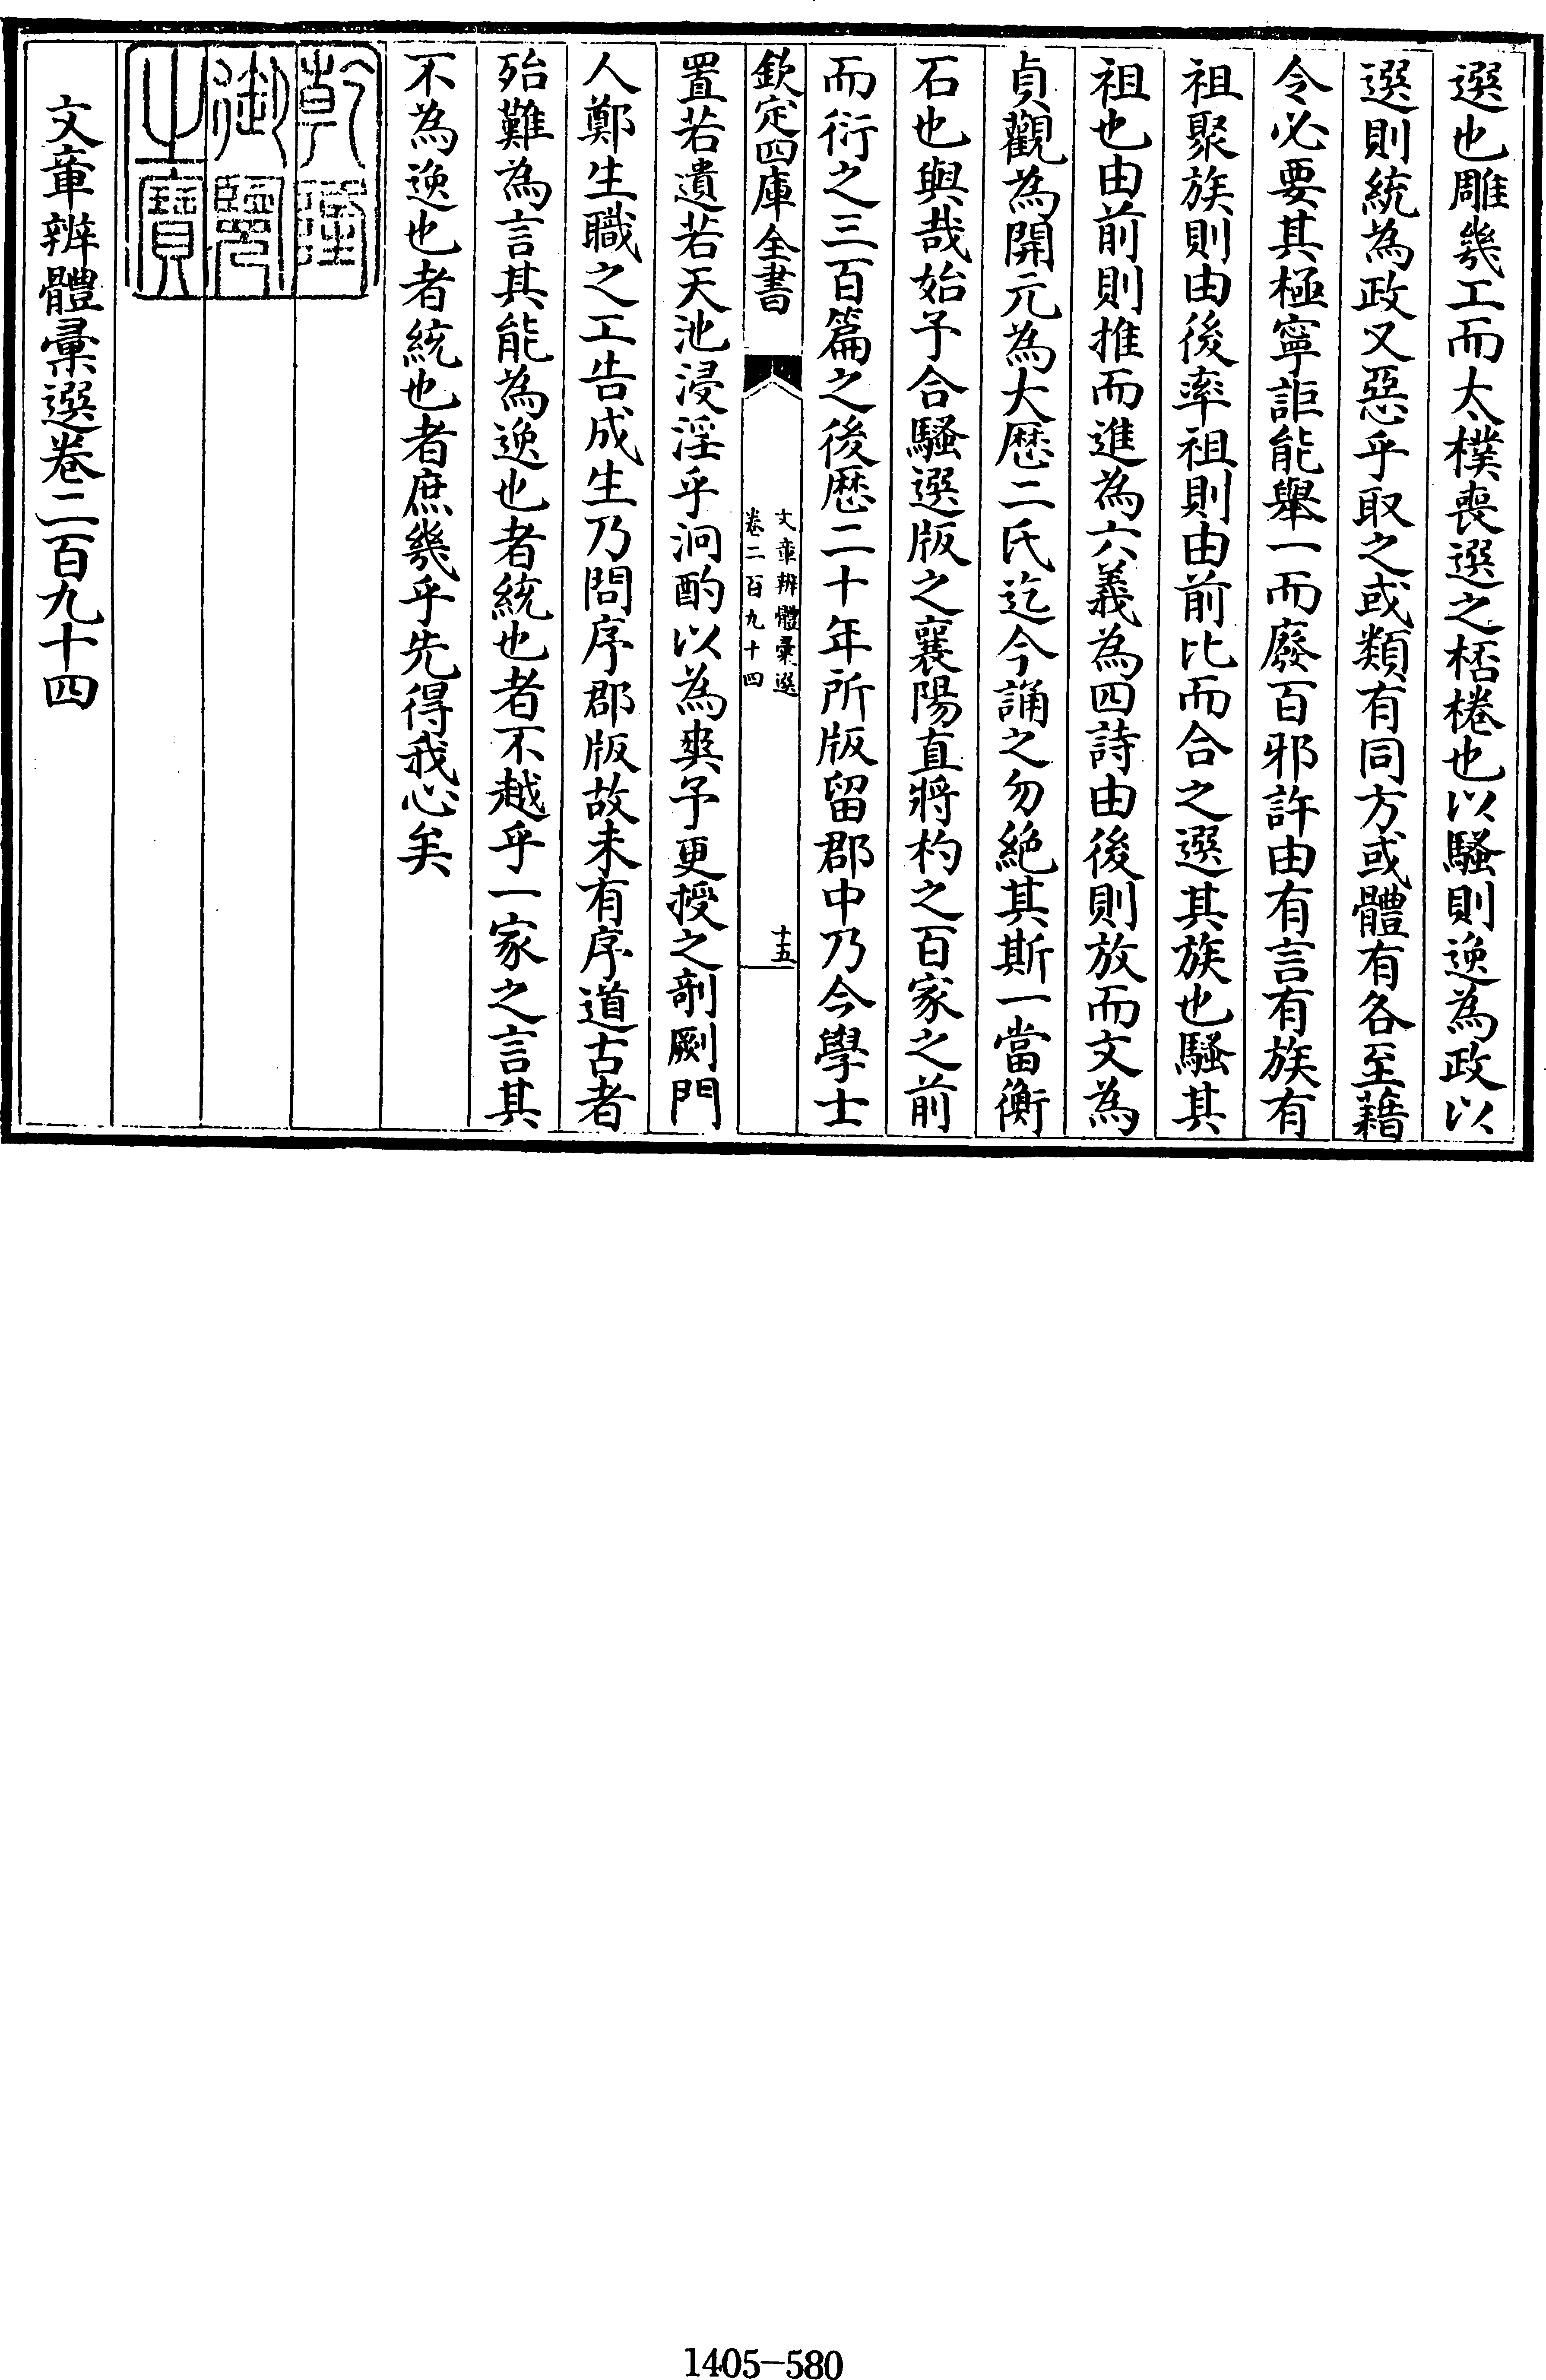 選也雕幾工而太樸喪選之桮棬也以騷則逸為政以
選則統為政又惡乎取之或類有同方或體有各至藉
令必要其極寧詎能舉一而廢百邪許由有言有族有
祖聚族則由後率祖則由前比而合之選其族也騷其
祖也由前則推而進為六義為四詩由後則放而文為
貞觀為開元為大厯二氏迄今誦之勿絶其斯一當衡
石也與哉始予合騷選版之襄陽直將杓之百家之前
而衍之三百篇之後厯二十年所版留郡中乃今學士
欽定四庫全書
文章辨體彙選
卷二百九十四
十五
置若遺若天池浸淫乎泂酌以為爽予更授之剞劂門
人鄭生職之工告成生乃問序郡版故未有序道古者
殆難為言其能為逸也者統也者不越乎一家之言其
不為逸也者統也者庶幾乎先得我心矣
乾隆
御覽
之寶
文章辨體彙選卷二百九十四
1405-580